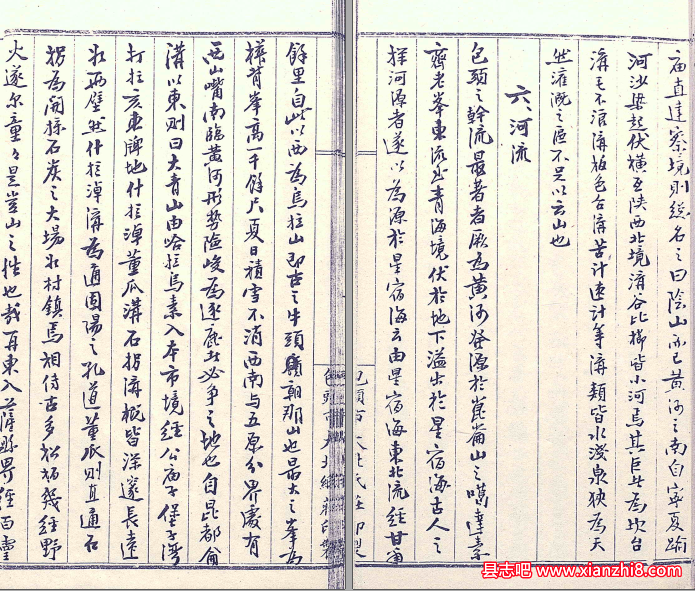 庙直達察境則総名之曰陰山永已黄河之南自宁夏踰
河沙梁起伏横互陕西北境溝谷比櫛皆小河焉其巨者為坎台
溝毛不浪溝柏色台溝苦计速计等溝類皆水淺泉狭為天
然灌溉之區不足以云山也
六、河流
包頭之幹流最著者厥為黄河發源於崑崙山之噶達素
齊老峯東流出青海境伏於地下溢出於星宿海古人之
探河源者遂以為源於星宿海云由星宿海東北流經甘肅
餘里自此以西為烏拉山即古之牛頭朝那山也最大之峯為
樺背峯高一千餘尺夏日積雪不消西南与五原分界處有
西山嘴南臨黄河形勢險峻為逐鹿者必争之地也自昆都侖
溝以東則曰大青山由哈拉烏素入本市境經公庙子堡子湾
打拉亥東牌地什拉淖董瓜溝石拐溝概皆深邃長遠
北两壁然什拉淖溝為通固陽之孔道董瓜則直通石
拐為開採石炭之大場北村鎮焉相传古多松柏幾經野
火遂尔童々是豈山之性也哉再東入薩縣界經百靈
包頭市
县志吧
www.xianzhi8.com